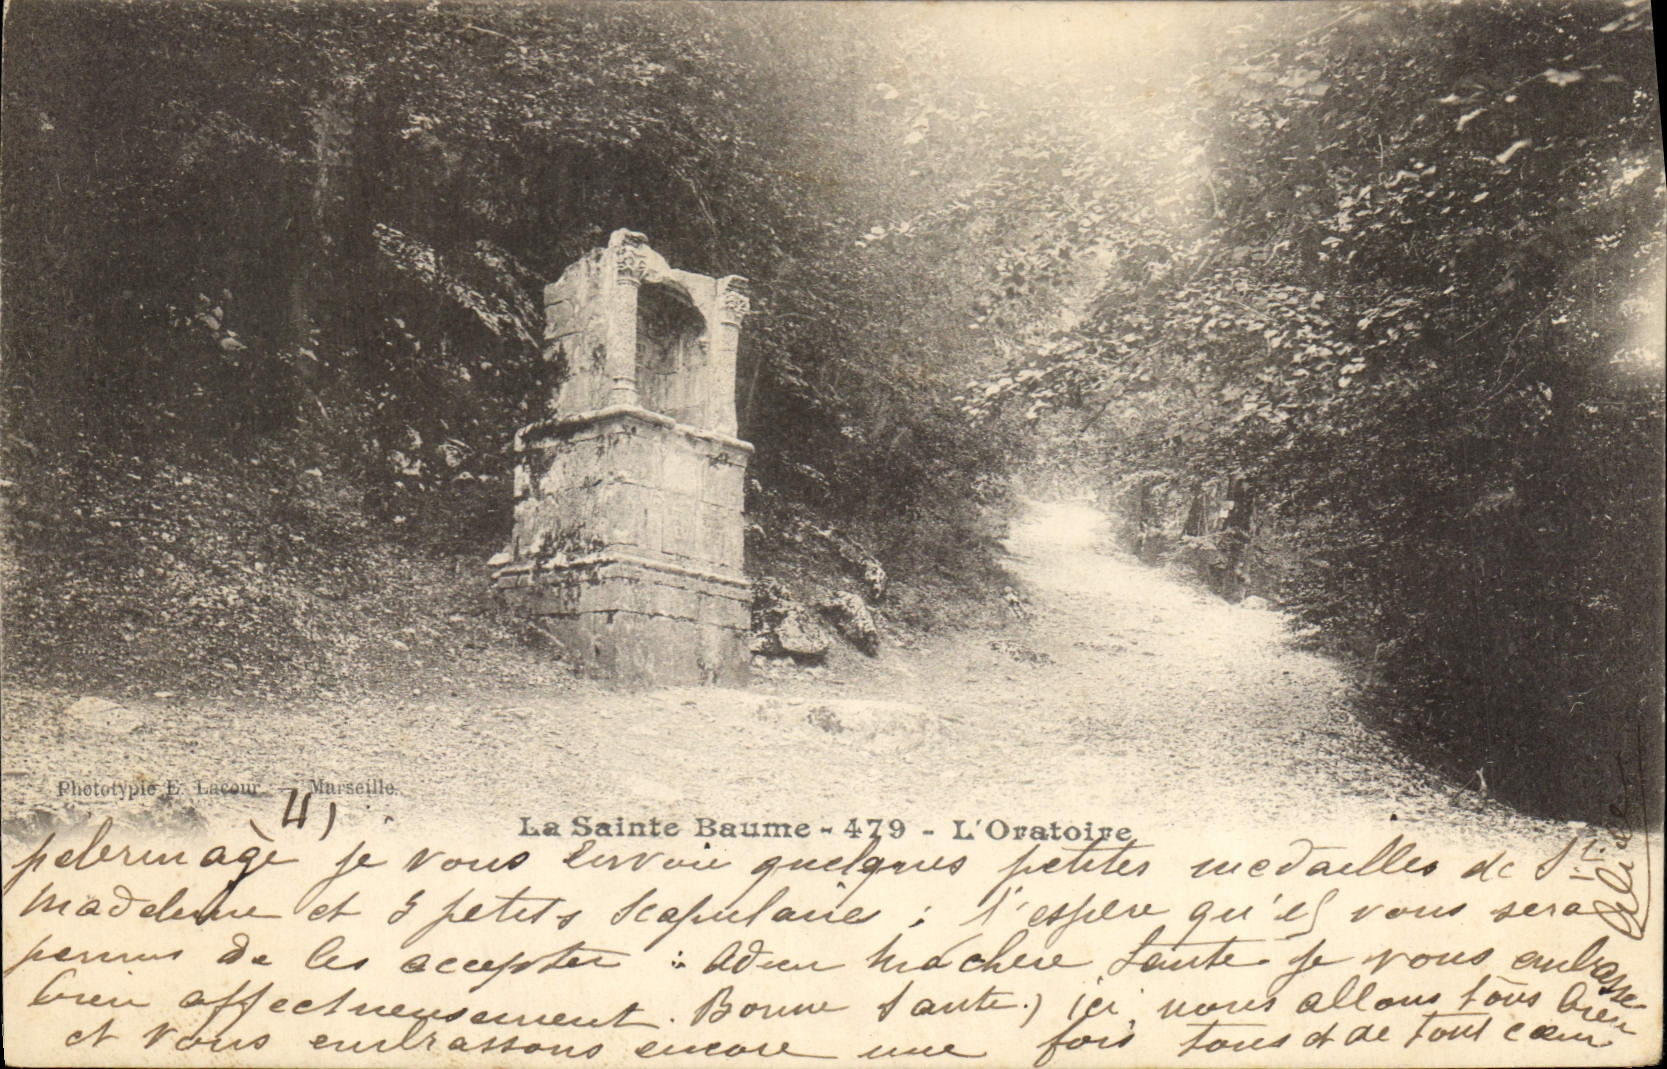 Phototypie E. Lacour. — Marseille.
4)
La Sainte Baume - 479 - L'Oratoire
pelerinage je vous envoie quelques petites medailles de Ste
Madeleine et 3 petits scapulaires ; j'espère qu'il vous sera
permis de les accepter : Adieu ma chere tante je vous embrasse
bien affectueusement. Bonne Santé.) ici nous allons tous bien
et vous embrassons encore une fois tous et de tout cœur